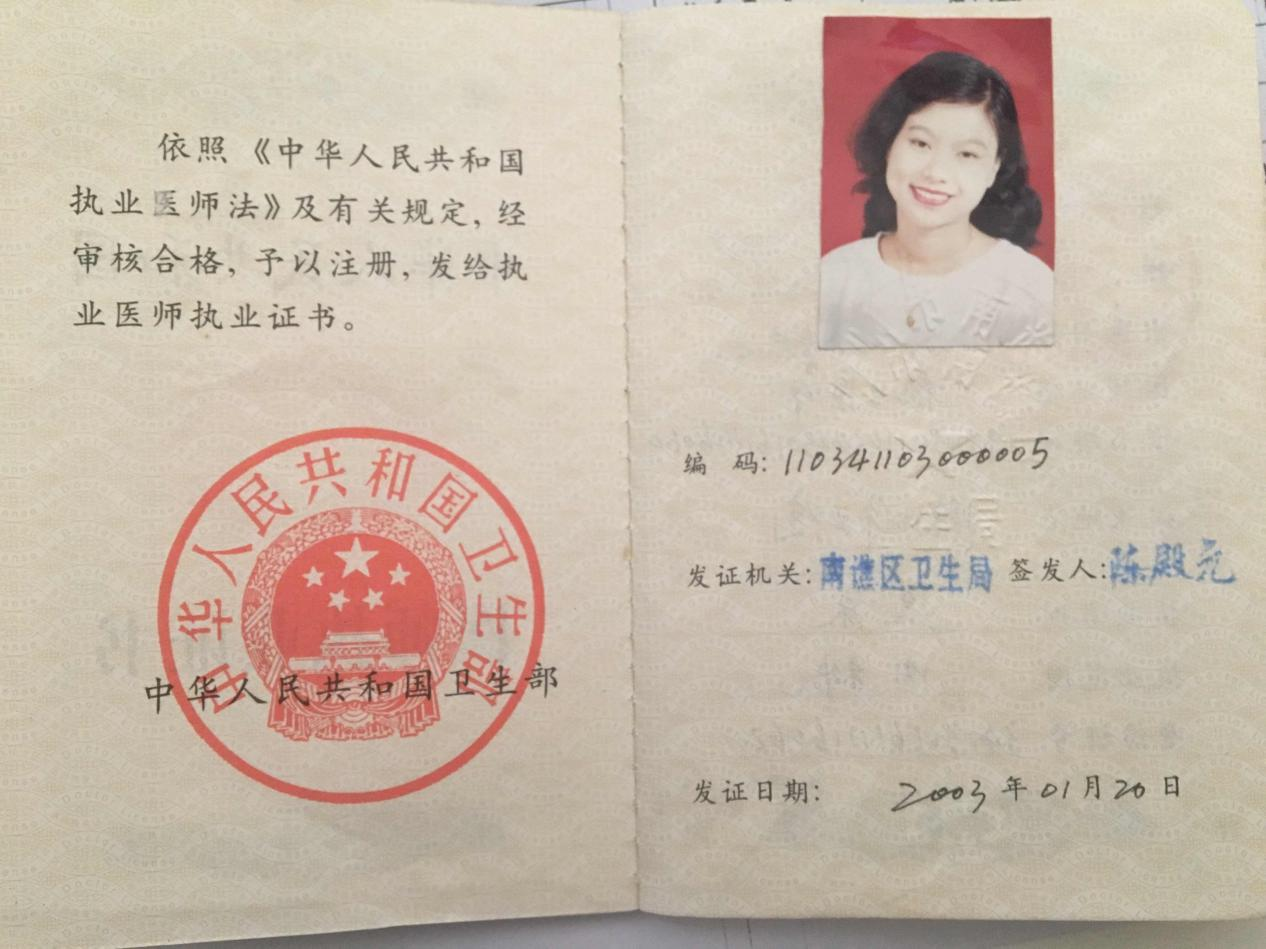 依照《中华人民共和国
执业医师法》及有关规定,经
审核合格,予以注册,发给执
业医师执业证书。
中华人民共和国卫生部
中华人民共和国卫生部
编 码:110341103000005
发证机关:南谯区卫生局 签发人:陈殿元
发证日期: 2003年01月20日